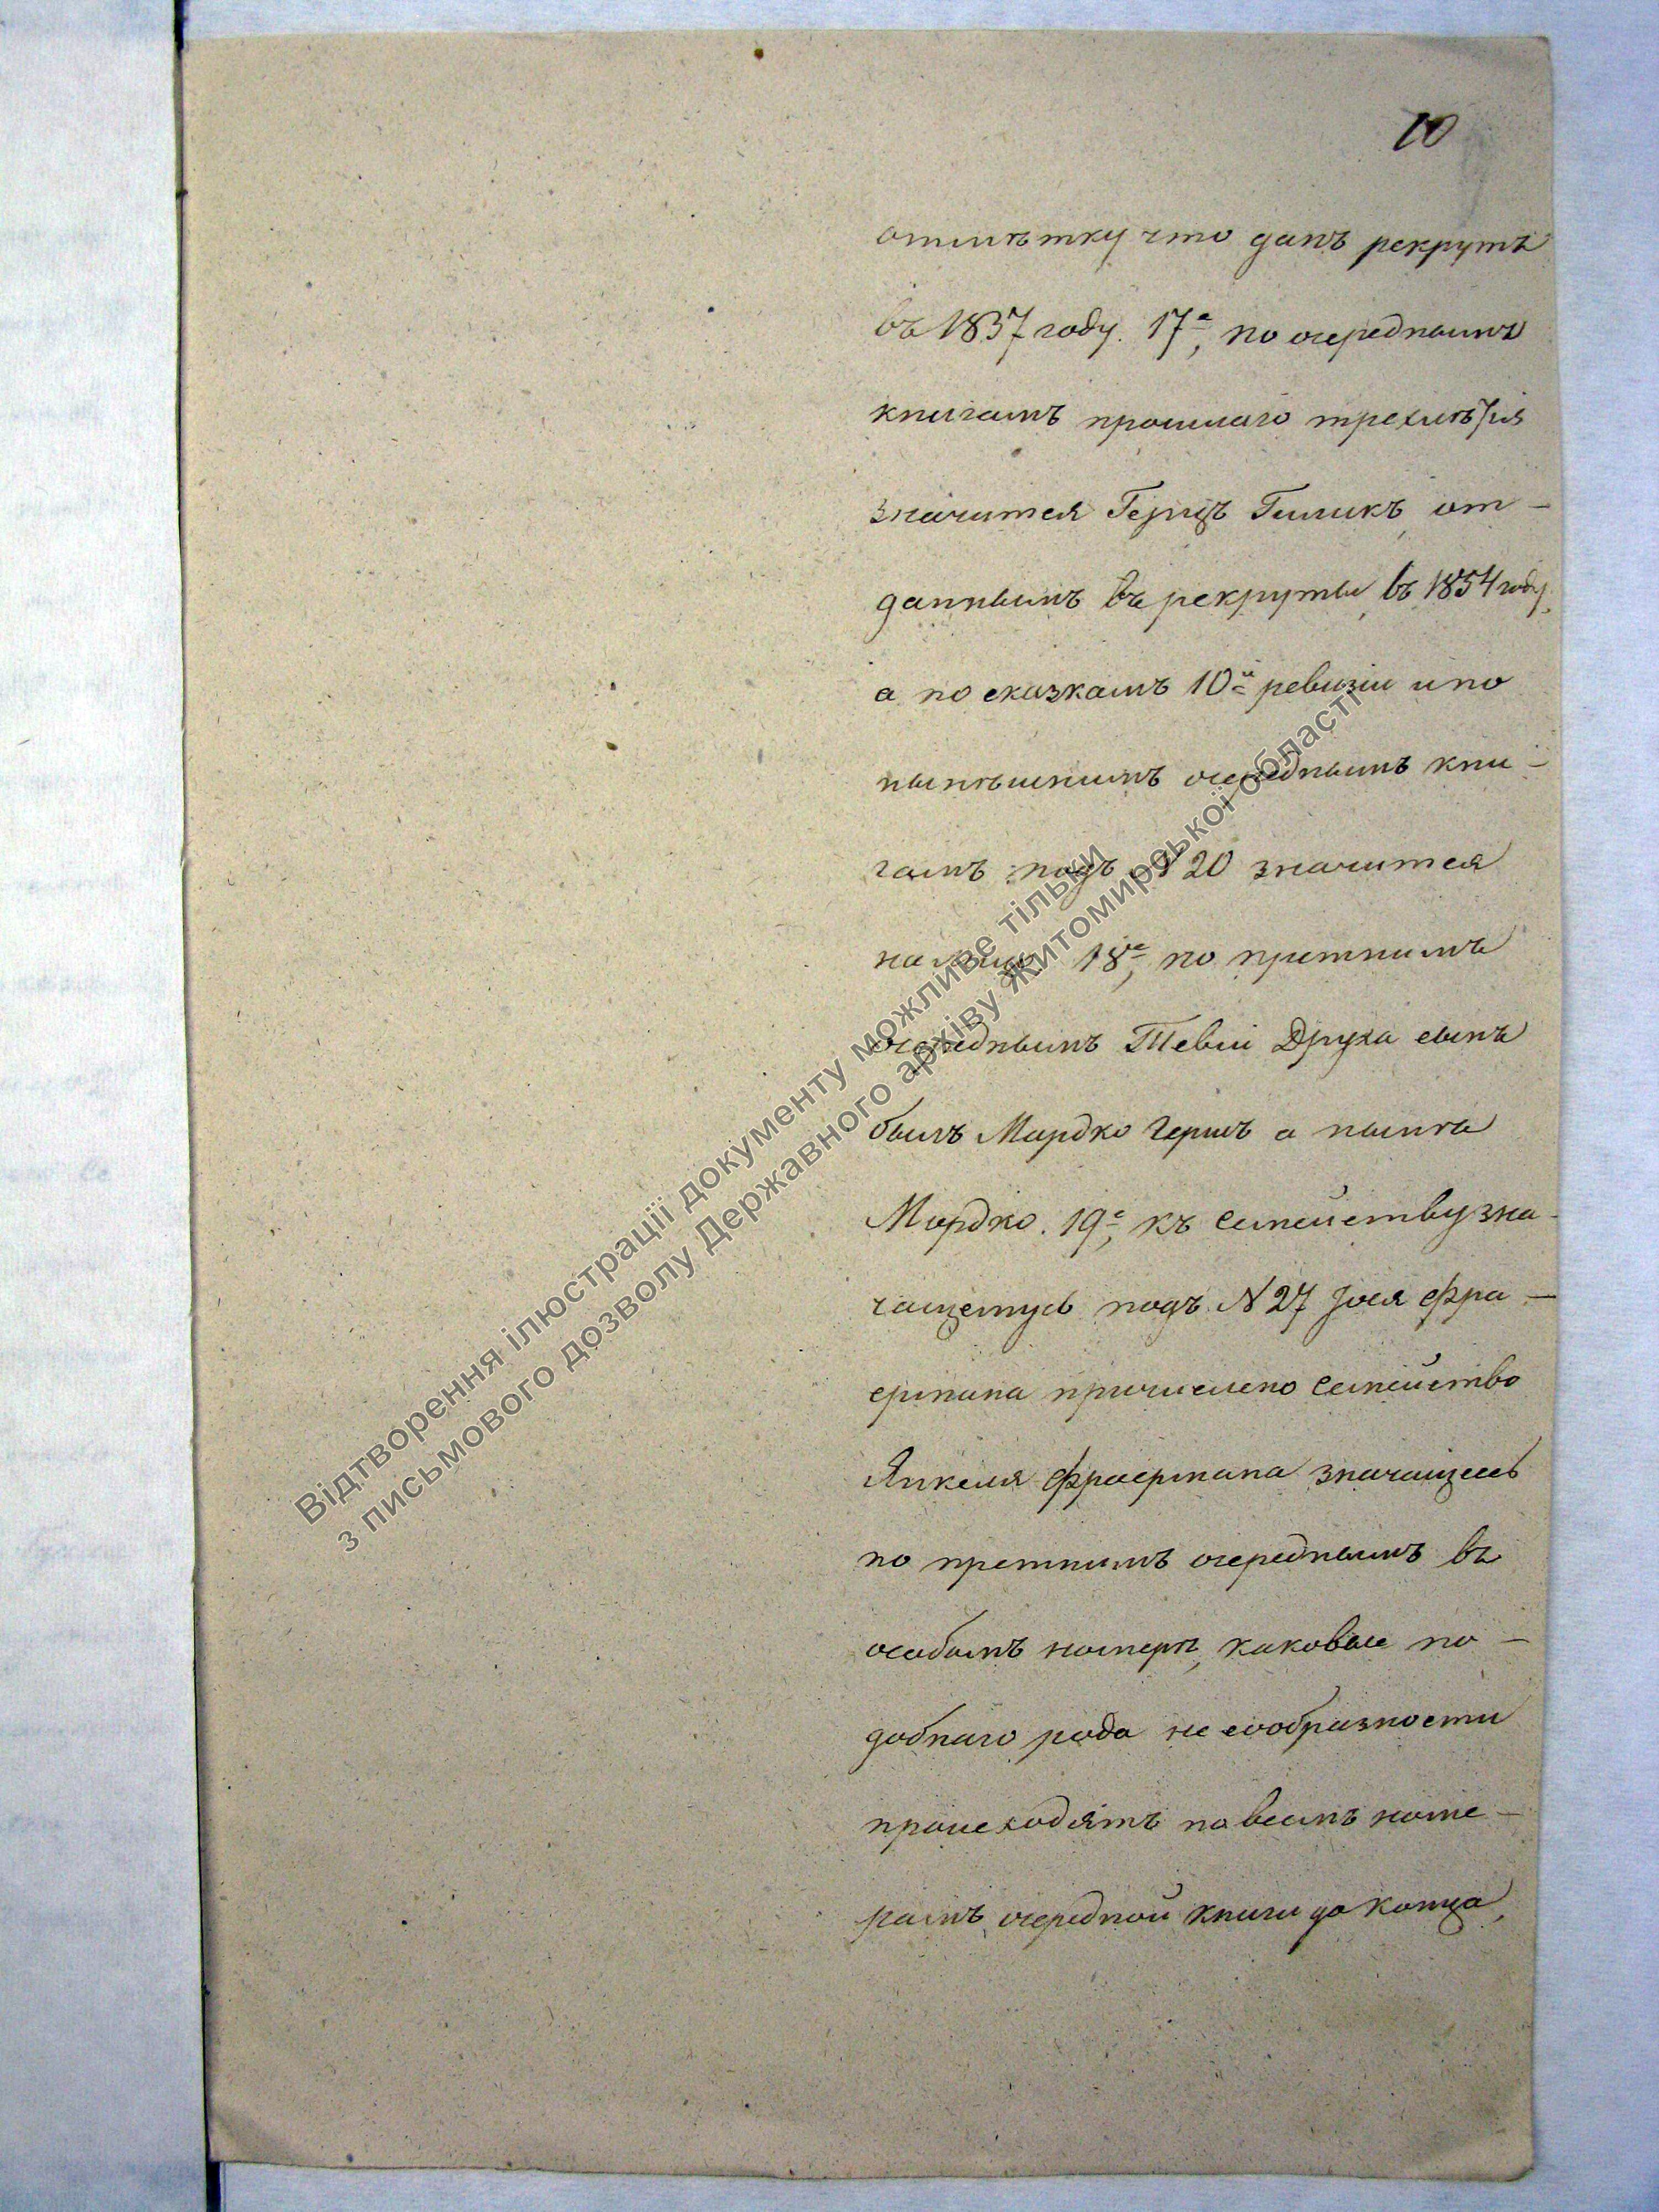 10
отмѣтку что данъ рекрутъ
въ 1837 году. 17е, по очереднымъ
книгамъ прошлаго трехлѣтія
значится Герцъ Гиликъ, от-
даннымъ въ рекруты, въ 1854 году,
а по сказкамъ 10й ревизіи и по
нынѣшнимъ очереднымъ кни-
гамъ подъ № 20 значится
на лицо 18е, по прежнимъ
очереднымъ Тевіи Друха сынъ
былъ Мардко Гершъ а нынѣ
Мардко. 19е, къ семейству зна-
чащемусь подъ N 27 Іося Фра-
ермана причислено семейство
Янкеля Фраермана значащеесь
по прежнимъ очереднымъ въ
особомъ номерѣ, каковые по-
добнаго рода не сообразности
происходятъ по всемъ номе-
рамъ очередной книги до конца,
Відтворення ілюстрації документу можливе тільки
з письмового дозволу Державного архіву Житомирської області